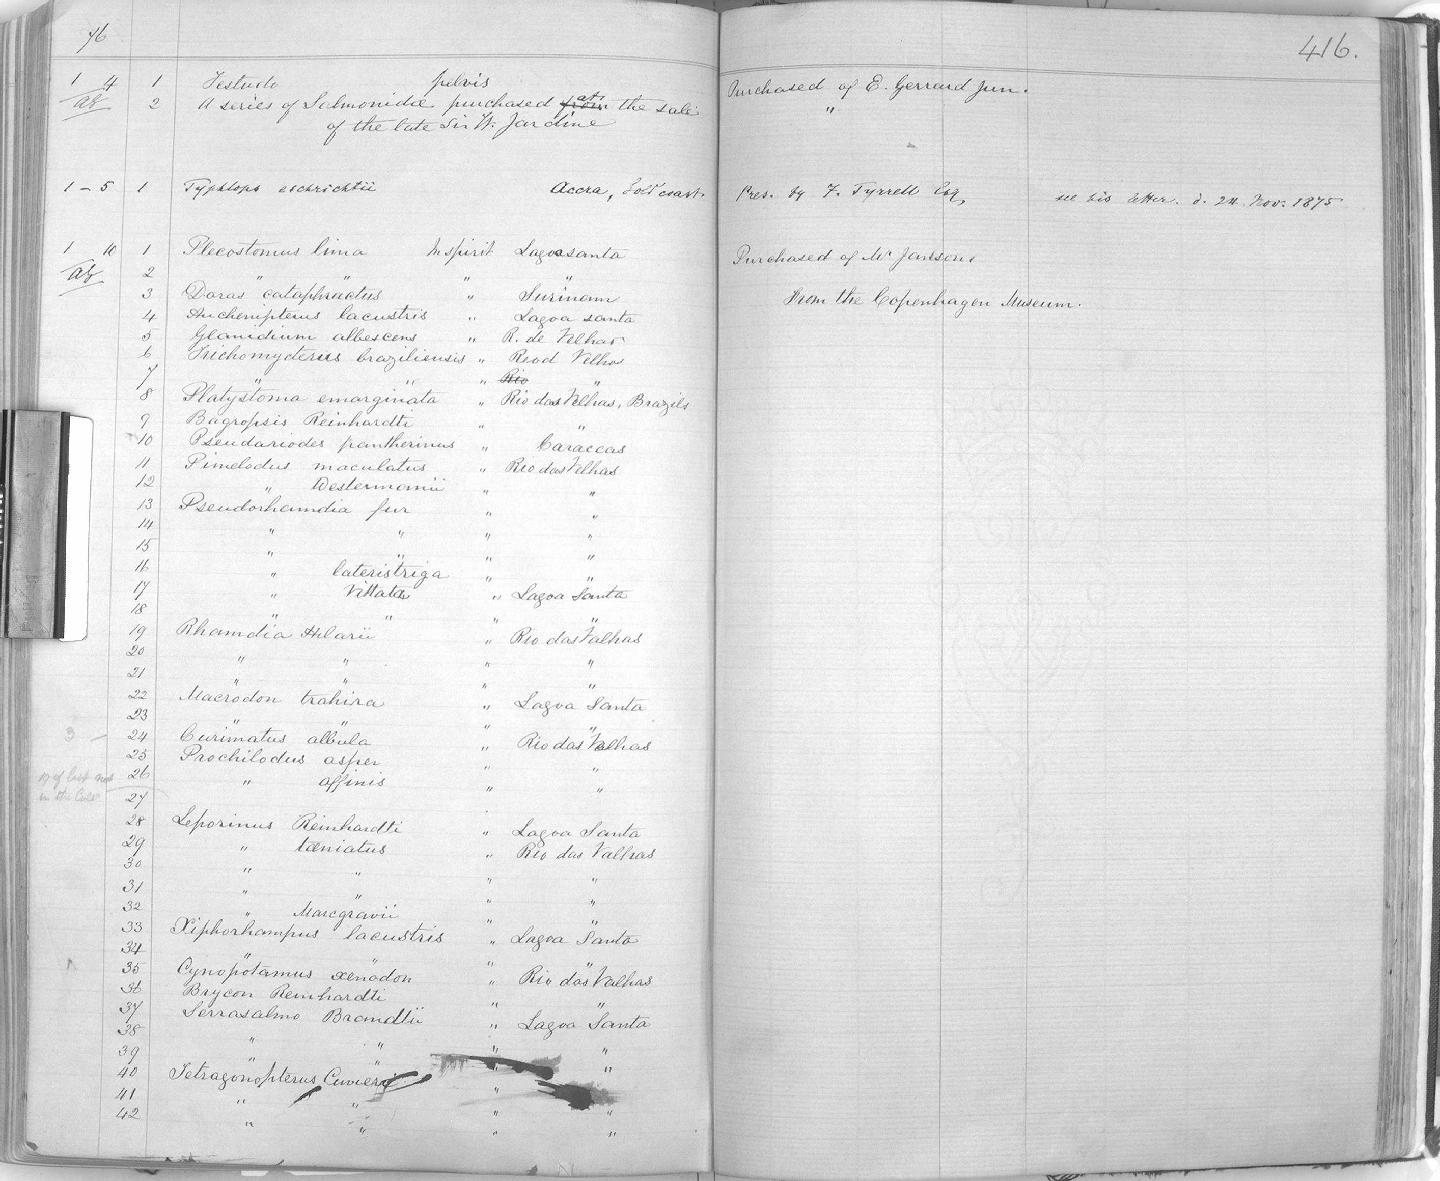 76
416.
1 4 1 Testudo pelvis Purchased of E. Gerrard Jun.
az 2 A series of Salmonidæ purchased from at the sale "
of the late Sir W. Jardine
1-5 1 Typhlops eschrichtii Accra, Gold coast. Pres. by F. Tyrrell Esq, see his letter. d. 24 Nov. 1875
1 10 1 Plecostomus lima In spirit Lagoa santa Purchased of Mr Janson,
az 2 " " "
3 Doras cataphractus " Surinam from the Copenhagen Museum.
4 Auchenipterus lacustris " Lagoa santa
5 Glanidium albescens " R. de Velhas
6 Trichomycterus braziliensis " Rio d Velhas
7 " " " Rio "
8 Platystoma emarginata " Rio das Velhas, Brazils
9 Bagropsis Reinhardti " "
10 Pseudariodes pantherinus " Caraccas
11 Pimelodus maculatus " Rio das Velhas
12 " Westermanii " "
13 Pseudorhamdia fur " "
14 " " " "
15 " " " "
16 " lateristriga " "
17 " Vittata " Lagoa Santa
18 " " " "
19 Rhamdia Hilarii " Rio das Valhas
20 " " " "
21 " " " "
22 Macrodon trahira " Lagoa Santa
23 " " " "
3 - 24 Curimatus albula " Rio das Valhas
25 Prochilodus asper " "
26 " affinis " "
of last not
in the Cols
27
28 Leporinus Reinhardti " Lagoa Santa
29 " tæniatus " Rio das Valhas
30 " " " "
31 " " " "
32 " Marcgravii " "
33 Xiphorhampus lacustris " Lagoa Santa
34 " " " "
35 Cynopotamus xenodon " Rio das Valhas
36 Brycon Reinhardti " "
37 Serrasalmo Brandtii " Lagoa Santa
38 " " " "
39 " " " "
40 Tetragonopterus Cuvieri "
41 " " " "
42 " " " "